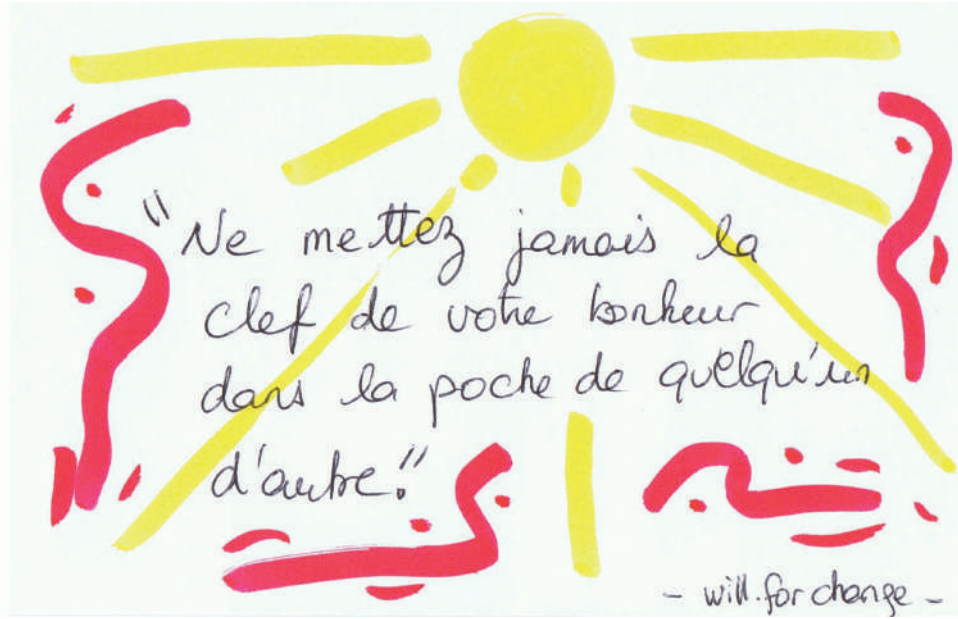 "Ne mettez jamais la
clef de votre bonheur
dans la poche de quelqu'un
d'autre."
- will.for change -